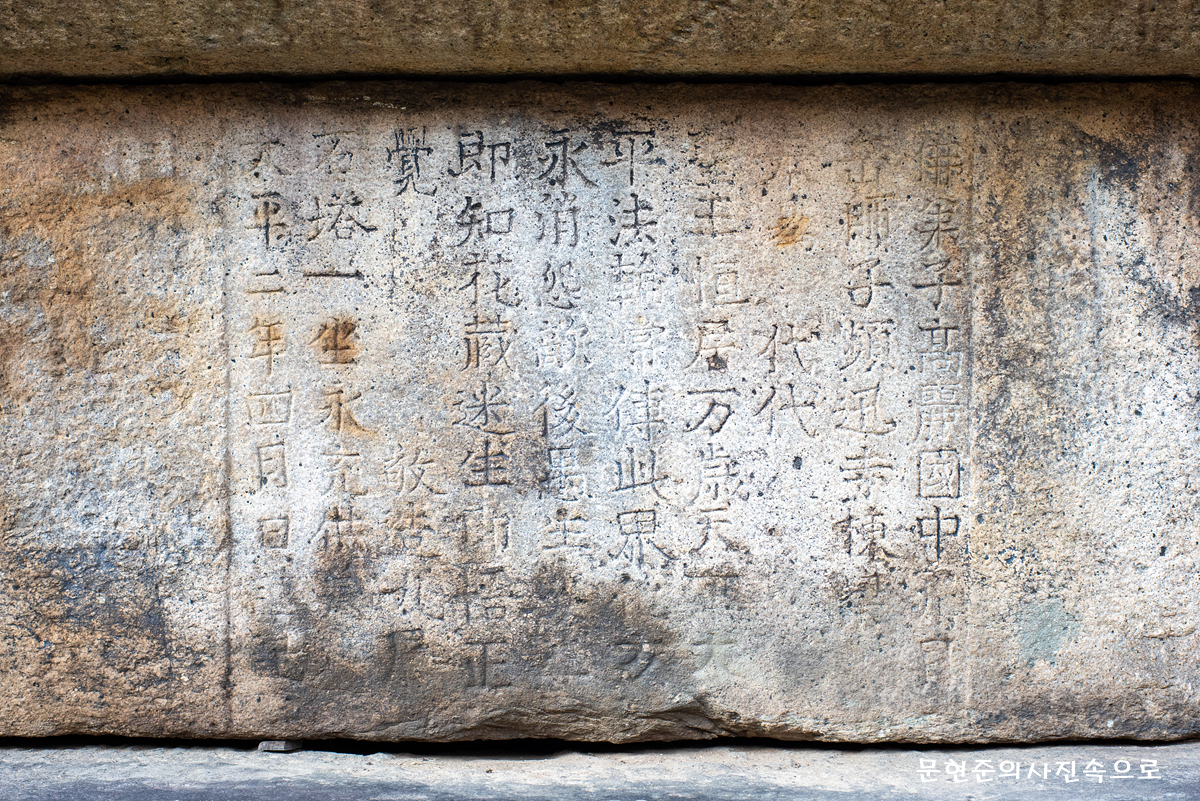 佛弟子高麗國中月
師子頻迅寺棟
代代
王恒居万歳天下
平法輪常傳此界方
永消怨敵後愚生
即知花蔵迷生即悟正
覺 敬造九
石塔一坐永充供
太平二年四月日
문현준의사진속으로